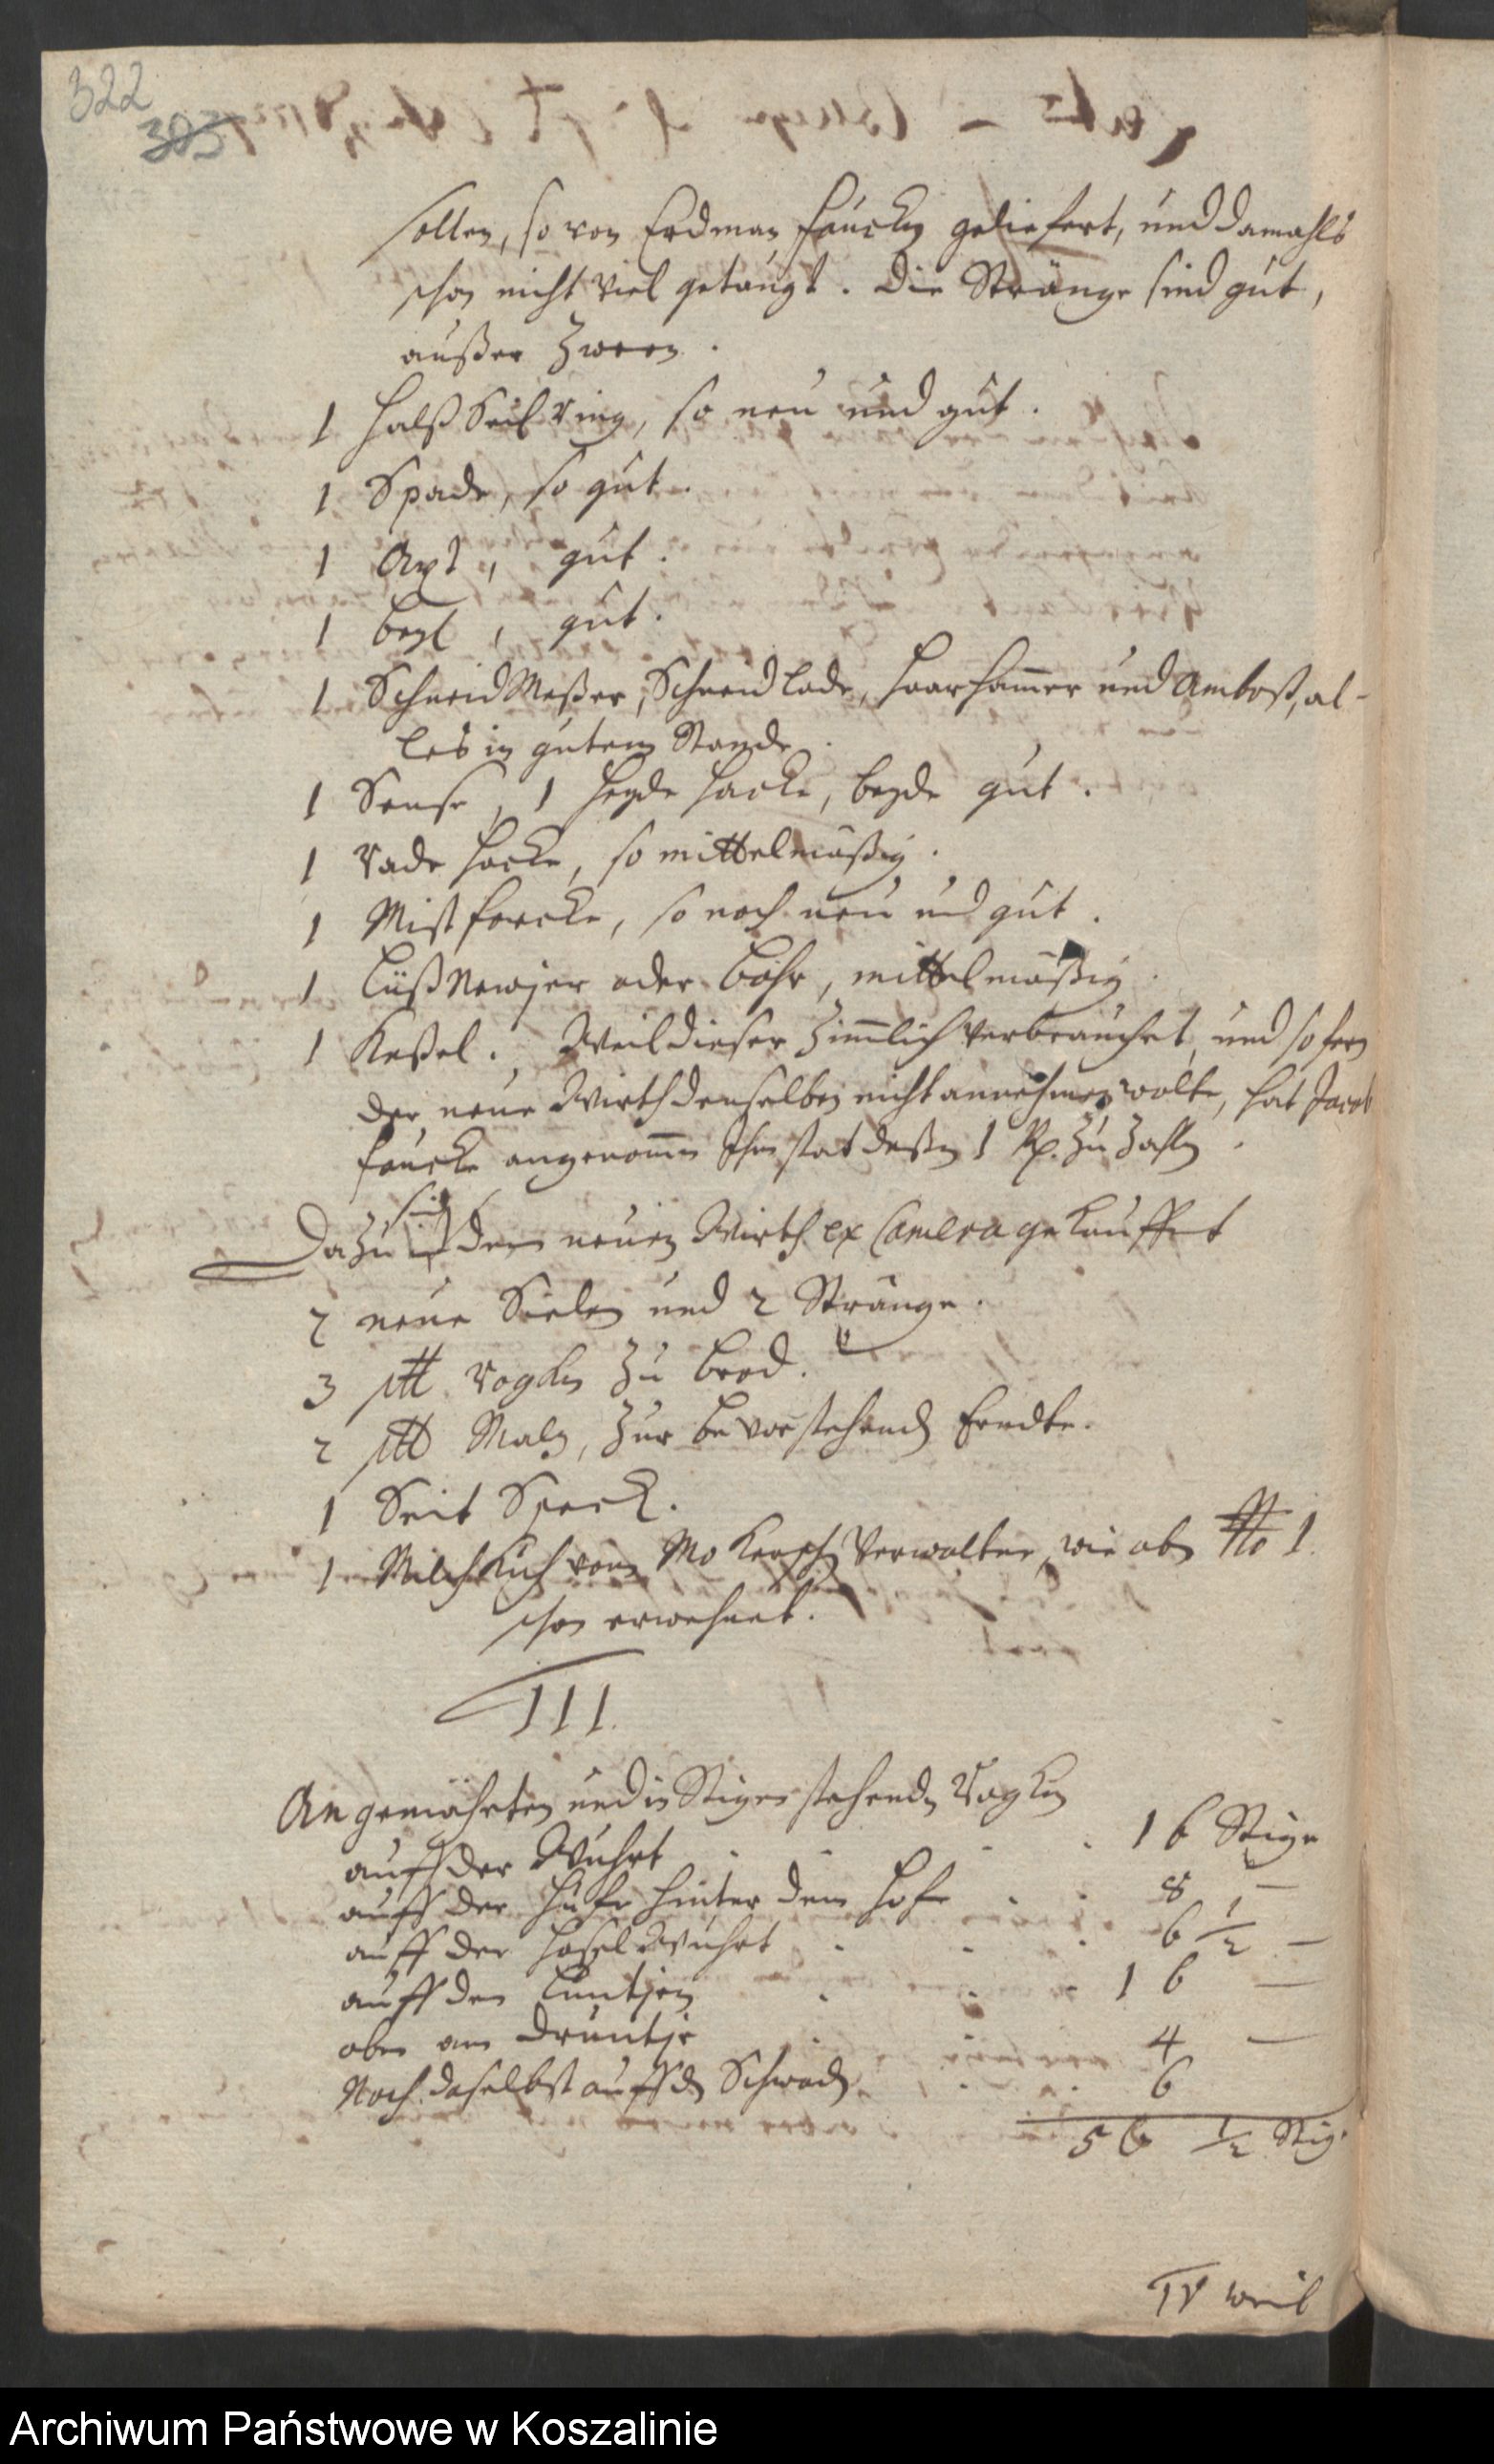 322
385
sollen, so von Erdman Faucken geliefert, und damahls
schon nicht viel getaugt. Die Stränge sind gut,
außer Zween.
1 Halß Seil Ring, so neu und gut.
1 Spade, so gut.
1 Axt, gut.
1 Beyl, gut.
1 Schneid Meßer, Schneid Lade, Haarhammer und Amboß, al-
les in gutem Stande.
1 Sense, 1 Heyde Hacke, beyde gut.
1 Rade Hacke, so mittelmäßig.
1 Mist forcke, so noch neu und gut.
1 oder Bohr, mittelmäßig.
1 Keßel. Weil dieser Zimlich verbrauchet, und so fern
der neue Wirth denselben nicht annehmen wolte, hat Jacob
Faucke angenommen Ihm stat deßen 1 Rh. zu Zahlen.
Dazu sind dem neuen Wirth ex Camera gekauffet
2 neue Sielen und 2 Stränge.
3 Rogken zu Brod.
2 Maltz, zur bevorstehenden Erndte.
1 Seit Speck.
1 Milch Kuh vom Verwalter, wie oben No 1.
schon erwehnet.
III.
An gemähten und in Stigen stehenden Rogken
auff der Wuhrt . . . . 16 Stige
auff der Hufe hinter dem Hofe . . 8 —
auff der Hasel Wuhrt . . . 6 1/2 —
auff den Luntjen . . . 16 —
oben am Druntje . . 4 —
Noch daselbst auff den Schwaden . . 6
56 1/2 Stig.
IV weil
Archiwum Państwowe w Koszalinie